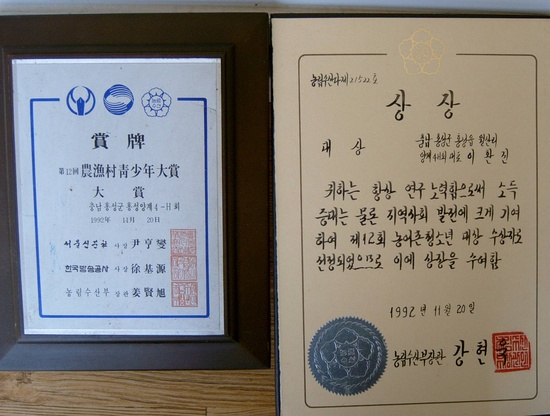 賞牌
第12回 農漁村青少年大賞
大賞
충남 홍성군 홍성양계 4-H회
1992年 11月 20日
서울신문社 사장 尹亨燮
한국방송공사 사장 徐基源
농림수산부 장관 姜賢旭
농림수산부 제21522호
상장
대상
충남 홍성군 홍성읍 월산리
양계4H회 대표 이환진
귀하는 항상 연구 노력함으로써 소득
증대는 물론 지역사회 발전에 크게 기여
하여 제12회 농어촌청소년 대상 수상자로
선정되었으므로 이에 상장을 수여함
1992년 11월 20일
농림수산부장관 강현욱